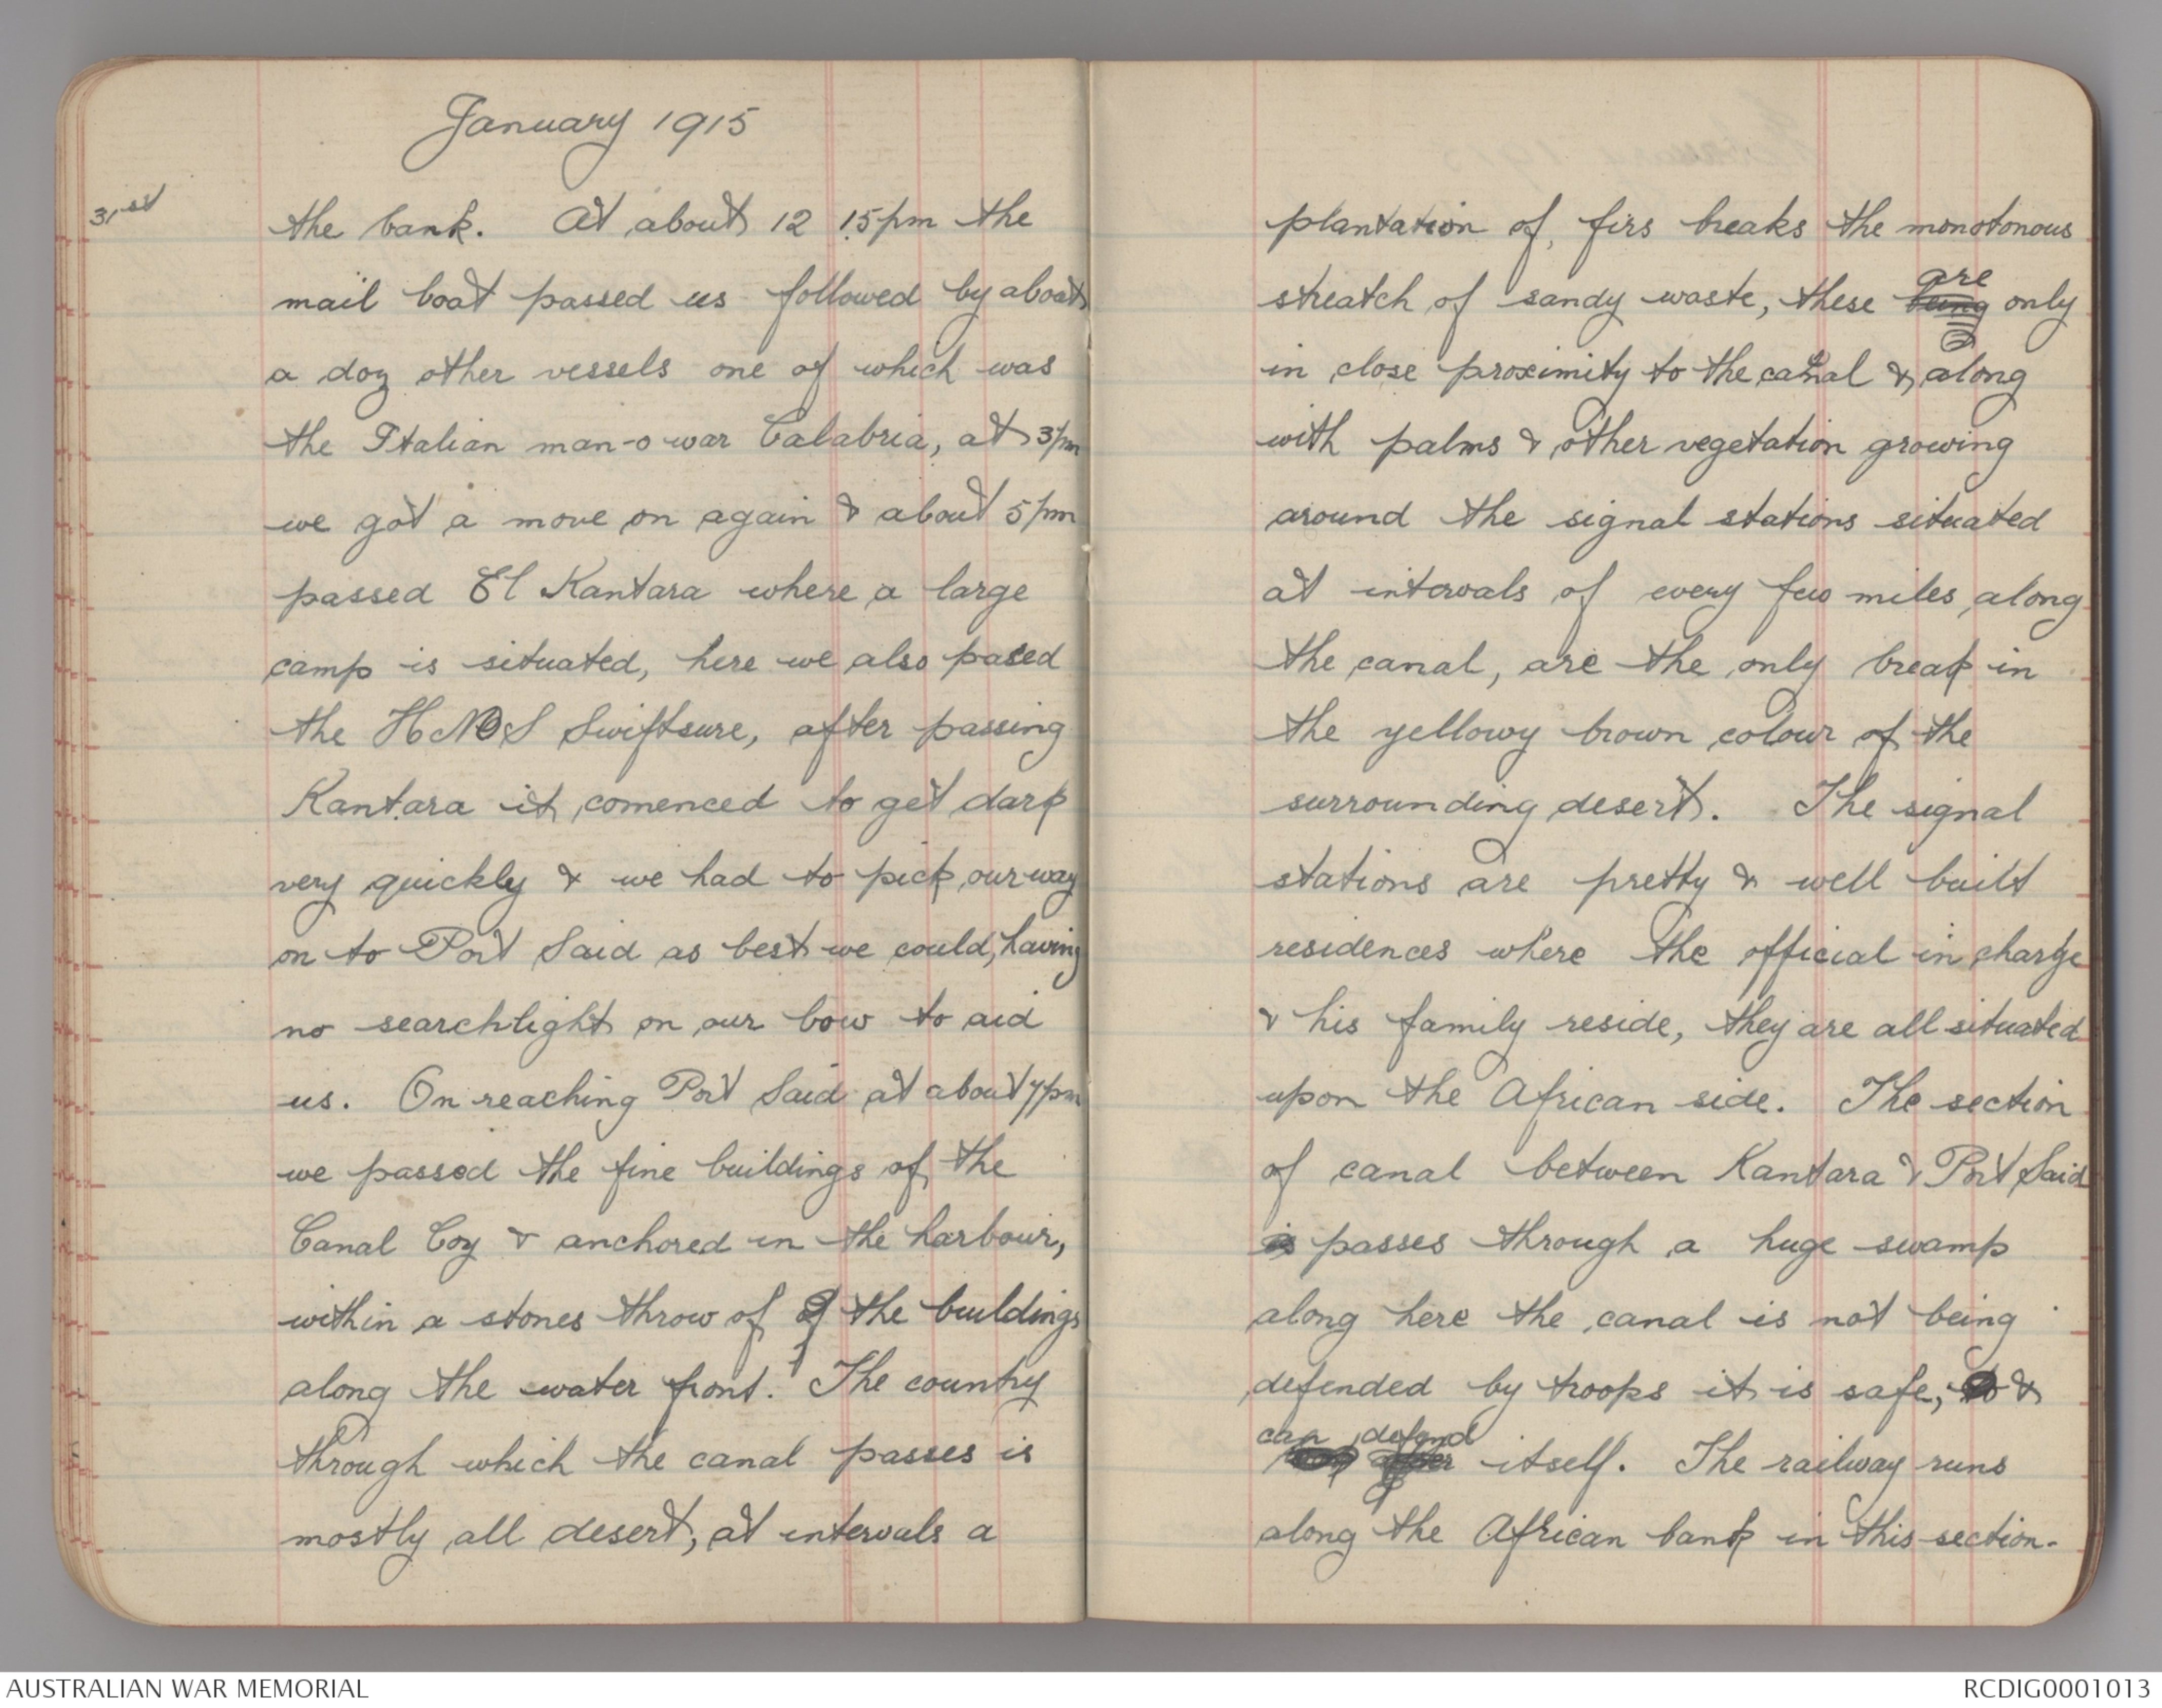 January 1915
31st
the bank. At about 12 15pm the
mail boat passed us followed by about
a doz other vessels one of which was
the Italian man-o war Calabria, at 3pm
we got a move on again & about 5pm
passed El Kantara where a large
camp is situated, here we also pased
the HMS Swiftsure, after passing
Kantara it comenced to get dark
very quickly & we had to pick our way
on to Port Said as best we could, having
no searchlight on our bow to aid
us. On reaching Port Said at about 7pm
we passed the fine buildings of the
Canal Coy & anchored in the harbour,
within a stones throw of the buildings
along the water front. The country
through which the canal passes is
mostly all desert, at intervals a
plantation of firs breaks the monotonous
streatch of sandy waste, these being are only
in close proximity to the canal & along
with palms & other vegetation growing
around the signal stations situated
at intervals of every few miles along
the canal, are the only break in
the yellowy brown colour of the
surrounding desert. The signal
stations are pretty & well built
residences where the official in charge
& his family reside, they are all situated
upon the African side. The section
of canal between Kantara & Port Said
is passes through a huge swamp
along here the canal is not being
defended by troops it is safe, &
can defend itself. The railway runs
along the African bank in this section.
AUSTRALIAN WAR MEMORIAL
RCDIG0001013